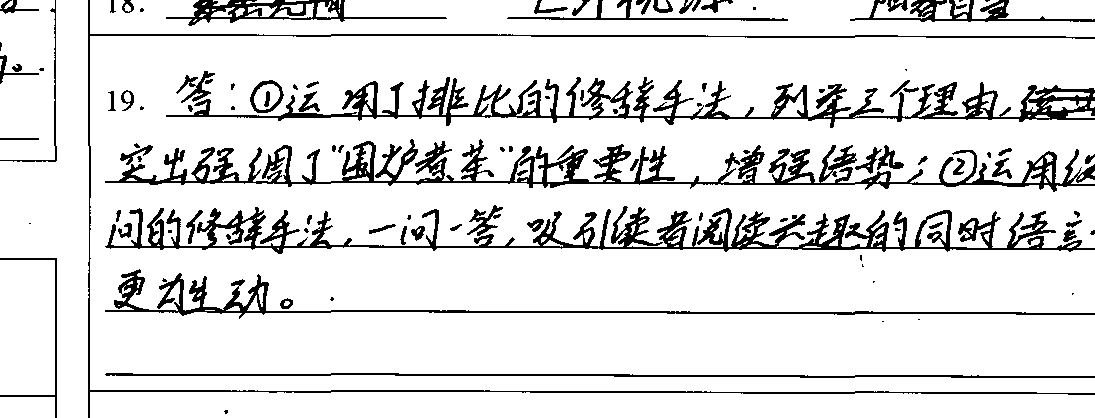 18. 世外桃源 阳春白雪
19. 答：①运用了排比的修辞手法，列举三个理由，
突出强调了“围炉煮茶”的重要性，增强语势；②运用设
问的修辞手法，一问一答，吸引读者阅读兴趣的同时语言
更为生动。